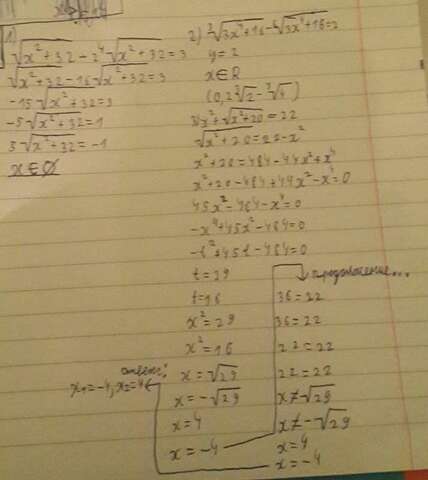 1)
√x²+32 - 2⁴√x²+32 = 3
√x²+32 - 16√x²+32 = 3
-15√x²+32 = 3
-5√x²+32 = 1
5√x²+32 = -1
x ∈ ∅
2) ²√3x⁴+16 - ⁶√3x⁴+16 = 2
y = 2
x ∈ R
x²+√x²+20 = 22
√x²+20 = 22-x²
x²+20 = 484-44x²+x⁴
x²+20-484+44x²-x⁴=0
45x²-464-x⁴=0
-x⁴+45x²-464=0
-t²+45t-464=0
t = 29
t = 16
x² = 29
x² = 16
x = √29
x = -√29
x = 4
x = -4
продолжение...
36 = 22
36 = 22
22 = 22
22 = 22
x ≠ √29
x ≠ -√29
x = 4
x = -4
ответ:
x₁=-4, x₂=4